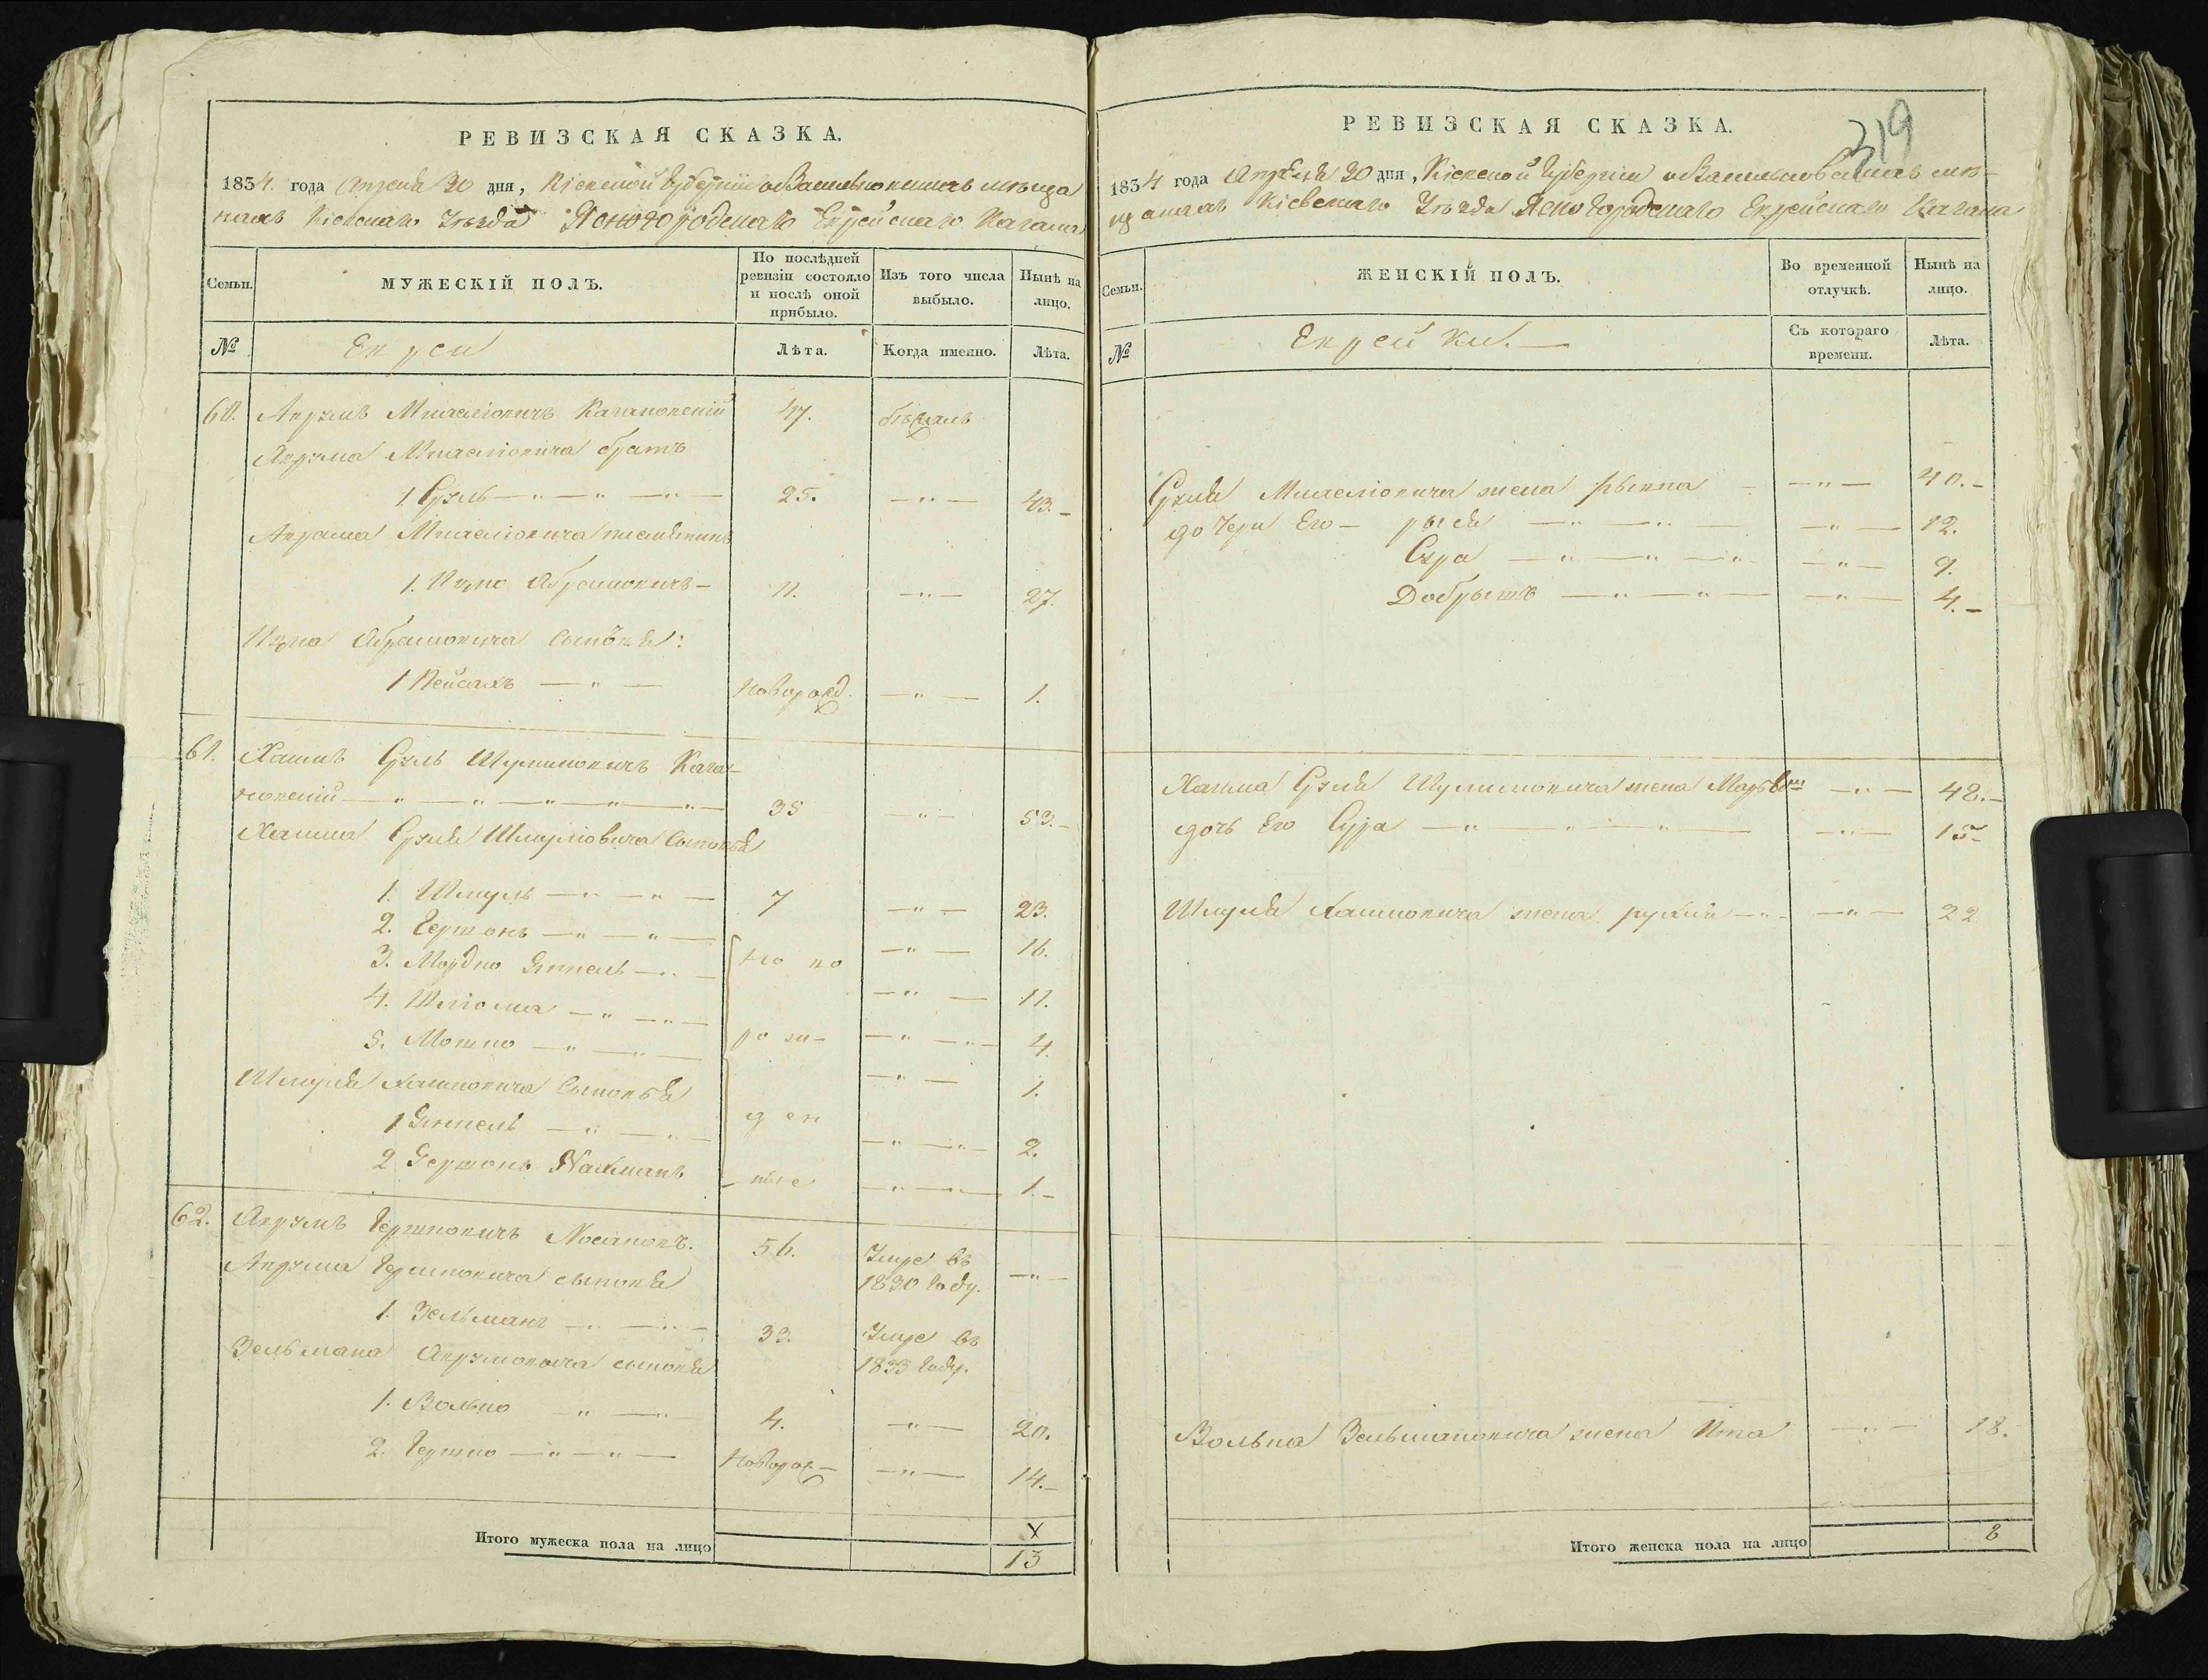 РЕВИЗСКАЯ СКАЗКА.
1834. года Апреля 30 дня, Кіевской Губерніи о Васильковскихъ мѣща
нахъ Кіевскаго Уѣзда Ясногородскаго Еврейскаго Кагала
Семьи.
МУЖЕСКІЙ ПОЛЪ.
По послѣдней ревизіи состояло и послѣ оной прибыло.
Изъ того числа выбыло.
Нынѣ на лицо.
№
Евреи
Лѣта.
Когда именно.
Лѣта.
60. Аврумъ Кагановскій 47. бѣжалъ
Аврума братъ
1 Сруль — " — " — " — 25. — " — 43. –
Аврама племянникъ
1. Ицко Абрамовичъ – 11. — " — 27.
Ицка Абрамовича сыновья:
1 Пейсахъ — " — Новорожд. — " — 1.
61. Хаимъ Сруль Шмулиовичъ Кага-
новскій — " — " — " — " — " — 35 — " — 53. –
Хаима Сруля Шмуліовича сыновья
1. Шмуль — " — " — 7 — " — 23.
2. Гершонъ — " — " — — " — 16.
3. Мордко Янкель — " — но во — " — 11.
4. Шліома — " — " — ро ж- — " — " — 4.
5. Мошко — " — " — — " — 1.
Шмуля Хаимовича сыновья
1 Янкель — " — " — д ен — " — " — 2.
2 Гершонъ Нахманъ ные — " — " — 1. –
62. Аврумъ Гершковичъ Носановъ. 56. Умре въ
1830 году. — " —
Аврума Гершковича сыновья
1. Зельманъ — " — " — 33. Умре въ
1833 году.
Зельмана Аврумовича сыновья
1. Волько — " — " — 4. — " — 20.
2. Гершко — " — " — Новорож– — " — 14. –
х
Итого мужеска пола на лицо 13
219
РЕВИЗСКАЯ СКАЗКА.
1834 года Апрѣля 30 дня, Кіевской Губерніи о Васильковскихъ мѣ-
щанахъ Кіевскаго Уѣзда Ясногородскаго Еврейскаго Кагала
Семьи.
ЖЕНСКІЙ ПОЛЪ.
Во временной отлучкѣ.
Нынѣ на лицо.
№
Еврейки. —
Съ котораго времени.
Лѣта.
Сруля жена Рывка — " — 40. –
дочери Его – Рыся — " — " — — " — 12.
Сура — " — " — " — " — 9.
Добрышъ — " — " — — " — 4. –
Хаима Сруля Шмулиовича жена — " — 48. –
дочь Его Сура — " — " — " — — " — 15 –
Шмуля Хаимовича жена Рухля — " – — " — 22
Волька Зельмановича жена Ита — " — 18.
Итого женска пола на лицо 8